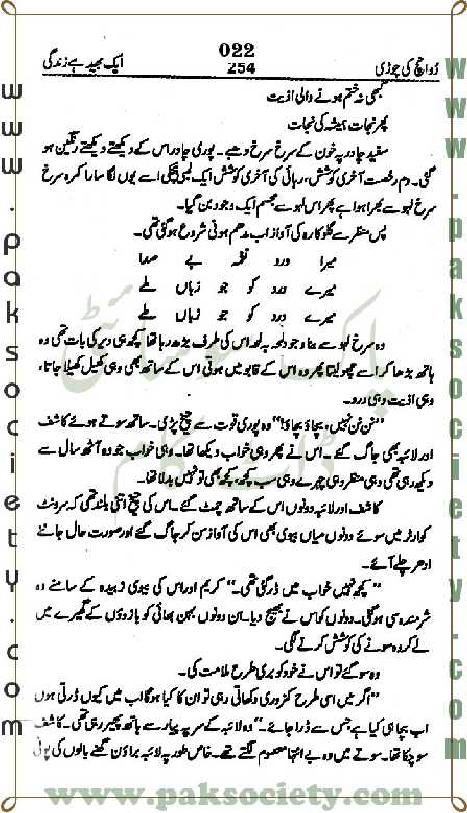 022
زواج کی جوڑی
254
ایک بھید ہے زندگی
کبھی نہ ختم ہونے والی اذیت
پھر نجات ہمیشہ کی نجات
سفید چادر پہ خون کے سرخ سرخ دھبے۔ پوری چادر اس کے دیکھتے دیکھتے رنگین ہو
گئی۔ دم رخصت آخری کوشش، رہائی کی آخری کوشش ایک لمبی ہچکی اسے یوں لگا سارا کمرہ سرخ
سرخ لہو سے بھرا ہوا ہے پھر اس لہو سے مجسم ایک وجود بن گیا۔
پس منظر سے گلوکارہ کی آواز اب مدھم ہونی شروع ہوگئی تھی۔
میرا درد نغمہ بے صدا
میرے درد کو جو زباں ملے
میرے درد کو جو زباں ملے
وہ سرخ لہو سے بنا وجود لمحہ بہ لمحہ اس کی طرف بڑھ رہا تھا کچھ ہی دیر کی بات تھی وہ
ہاتھ بڑھا کر اسے چھو لیتا پھر وہ اس کے قابو میں ہوتی اس کے ساتھ بھی وہی کھیل کھیلا جاتا،
وہی اذیت وہی درد۔
”نن نن نہیں، بچاؤ بچاؤ!“ وہ پوری قوت سے چیخ پڑی۔ ساتھ سوئے ہوئے کاشف
اور لائبہ بھی جاگ گئے۔ اس نے پھر وہی خواب دیکھا تھا۔ وہی خواب جو وہ آٹھ سال سے
دیکھ رہی تھی وہی منظر وہی چہرے وہی سب کچھ، کچھ بھی تو نہیں بدلا تھا۔
کاشف اور لائبہ دونوں اس کے ساتھ چمٹ گئے۔ اس کی چیخ اتنی بلند تھی کہ سرونٹ
کوارٹر میں سوئے دونوں میاں بیوی بھی اس کی آواز سن کر جاگ گئے اور صورت حال جاننے
ادھر چلے آئے۔
”کچھ نہیں خواب میں ڈر گئی تھی۔“ کریم اور اس کی بیوی زبیدہ کے سامنے وہ
شرمندہ سی ہوگئی۔ دونوں کو اس نے بھیج دیا۔ ان دونوں بہن بھائی کو بازوؤں کے گھیرے میں
لے کر وہ سونے کی کوشش کرنے لگی۔
وہ سو گئے تو اس نے خود کو بری طرح ملامت کی۔
”اگر میں اسی طرح کمزوری دکھاتی رہی تو ان کا کیا ہوگا اب میں کیوں ڈرتی ہوں
اب بچا ہی کیا ہے جس سے ڈرا جائے۔“ وہ لائبہ کے سر پہ پیار سے ہاتھ پھیر رہی تھی۔ کاشف
سو چکا تھا۔ سوتے میں وہ بے انتہا معصوم لگتے تھے۔ خاص طور پہ لائبہ براؤن گھنے بالوں کی پونی
www.paksociety.com
www.paksociety.com
www.paksociety.com